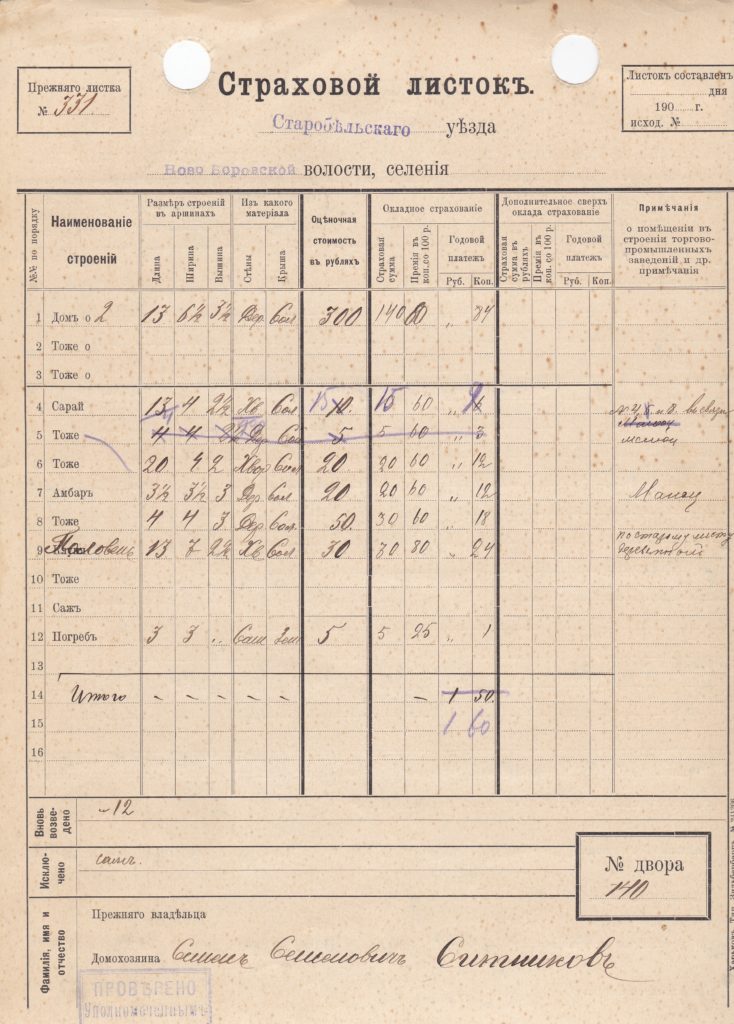 Прежняго листка
№ 331
Страховой листокъ.
Старобѣльскаго уѣзда
Ново Боровской волости, селенія
Листокъ составленъ
дня
190 г.
исход. №
№№ по порядку
Наименованіе строеній
Размѣръ строеній въ аршинахъ
Длина
Ширина
Вышина
Изъ какого матеріала
Стѣны
Крыша
Оцѣночная стоимость въ рубляхъ
Окладное страхованіе
Страховая сумма
Премія въ коп. со 100 р.
Годовой платежъ
Руб. Коп.
Дополнительное сверхъ оклада страхованіе
Страховая сумма въ рубляхъ
Премія въ коп. со 100 р.
Годовой платежъ
Руб. Коп.
Примѣчанія
о помѣщеніи въ строеніи торгово-промышленныхъ заведеній и др. примѣчанія
1 Домъ о 2 13 6½ 3½ Дер Сол 300 140 60 „ 84
2 Тоже о
3 Тоже о
4 Сарай 13 4 2½ Хв Сол 15 15 60 „
5 Тоже 4 4 Дер Сол 5 5 60 „ 3
6 Тоже 20 4 2 Хвор Сол 20 20 60 „ 12
7 Амбаръ 3½ 3½ 3 Дер Сол 20 20 60 „ 12
8 Тоже 4 4 3 Дер Сол 50 30 60 „ 18
9 Половень 13 7 2½ Хв Сол 30 30 80 „ 24 по старому листу
10 Тоже
11 Сажъ
12 Погребъ 3 3 „ 5 5 25 „ 1
13
14 Итого – – – – – – 1 50.
15 1 60
16
Вновь возведено
12
Исключено
№ двора
140
Фамилія, имя и отчество
Прежняго владѣльца
Домохозяина Семеновичъ Ситниковъ
ПРОВѢРЕНО
Уполномоченнымъ